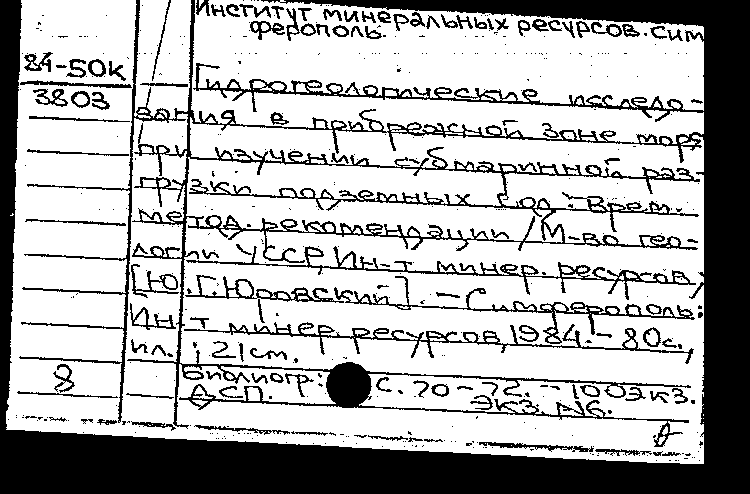 Институт минеральных ресурсов. Сим
ферополь.
84-50к
3803
Гидрогеологические исследо-
вания в прибрежной зоне моря
при изучении субмаринной раз-
грузки подземных вод: Врем.
метод. рекомендации / М-во гео-
логии УССР, Ин-т минер. ресурсов;
[Ю.Г. Юровский]. - Симферополь:
Ин-т минер. ресурсов, 1984. - 80с.,
ил.; 21 см.
Библиогр.: с. 70-72. - 100 экз.
ДСП. Экз. №6.
8